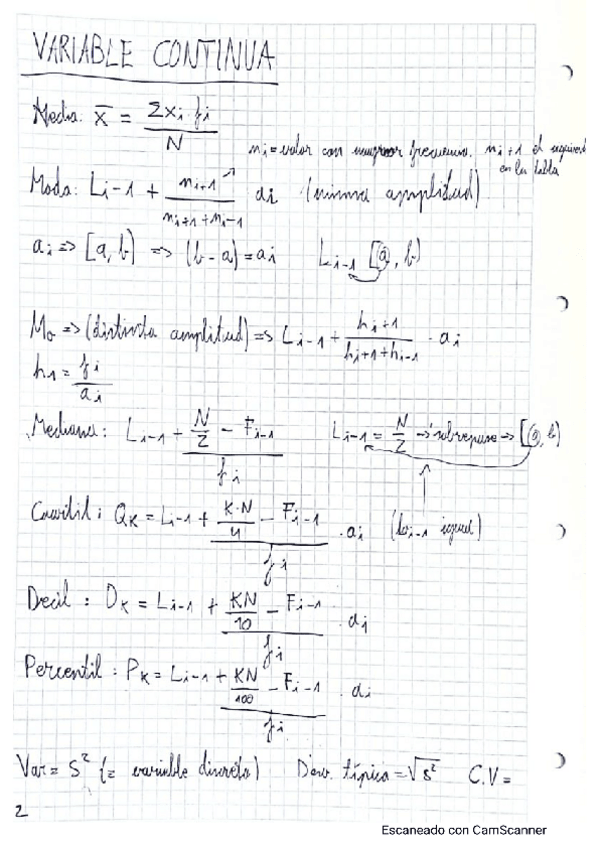 VARIABLE CONTINUA
Media: x̄ = Σxi · fi / N
ni = valor con mayor frecuencia. ni+1 el siguiente en la tabla
Moda: Li-1 + ni+1 / (ni+1 + ni-1) ai (misma amplitud)
ai => [a, b) => (b-a) = ai Li-1 [a, b)
Mo => (distinta amplitud) => Li-1 + hi+1 / (hi+1 + hi-1) · ai
h1 = fi / ai
Mediana: Li-1 + (N/2 - Fi-1) / fi Li-1 = N/2 → sobrepase → [a, b)
Cuartil: QK = Li-1 + (K·N/4 - Fi-1) / fi · ai (Li-1 igual)
Decil: DK = Li-1 + (KN/10 - Fi-1) / fi · ai
Percentil: PK = Li-1 + (KN/100 - Fi-1) / fi · ai
Var = S² (= variable discreta) Desv. típica = √s² C.V =
2
Escaneado con CamScanner